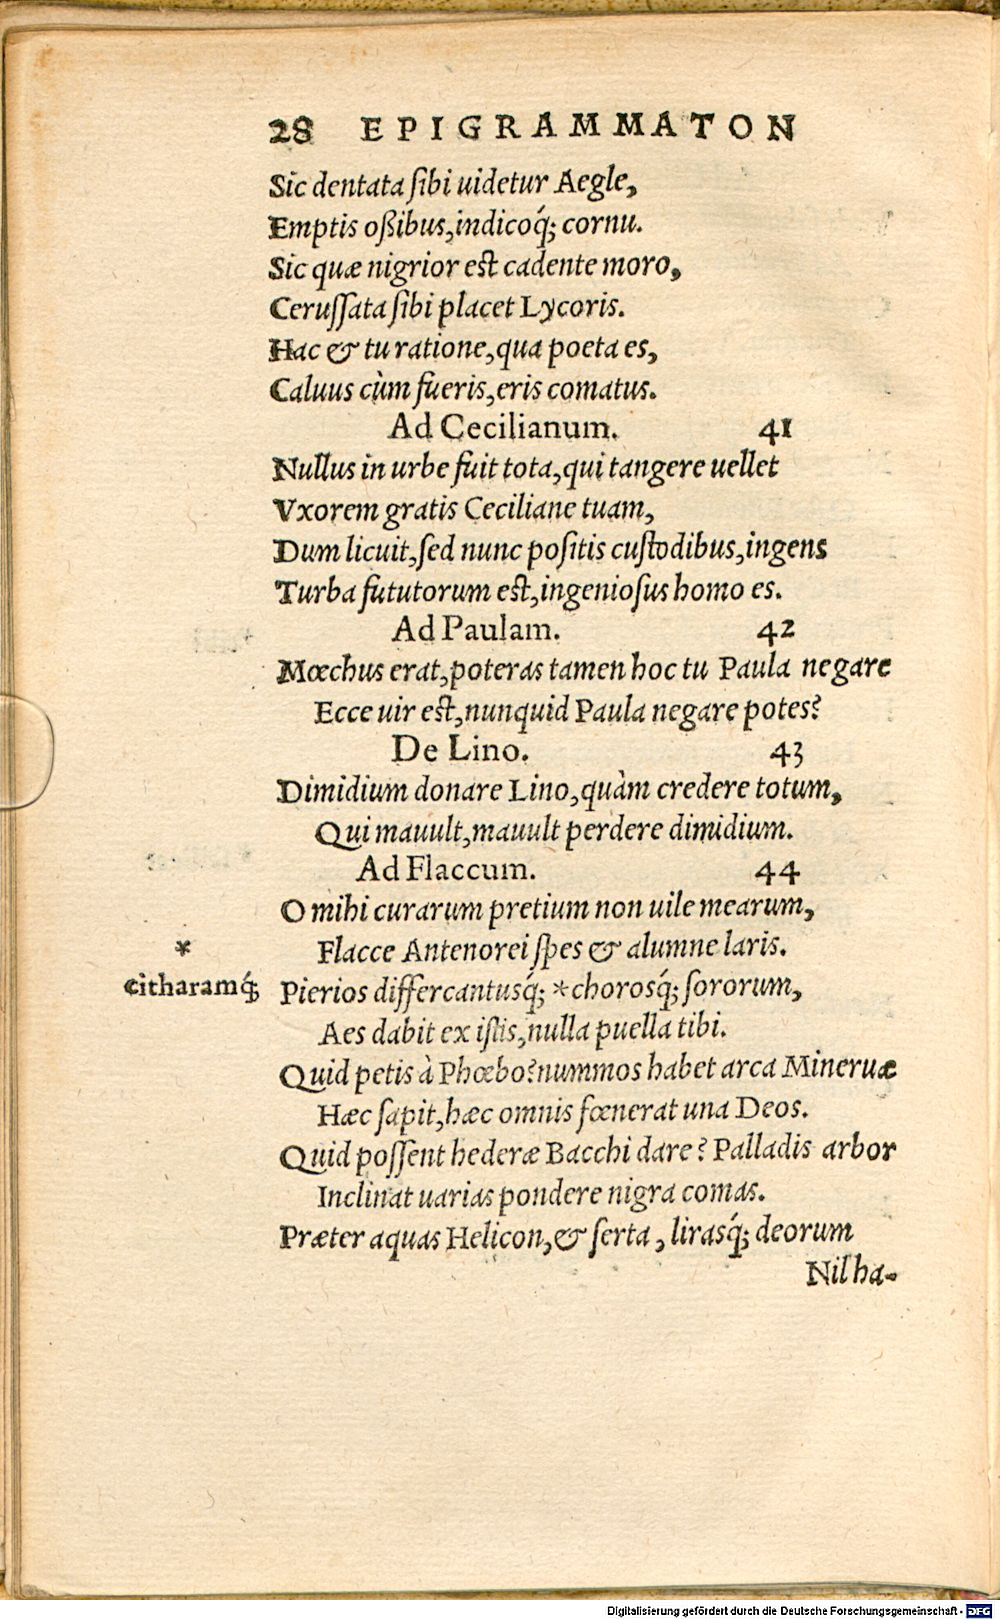 28 EPIGRAMMATON
Sic dentata ſibi uidetur Aegle,
Emptis oßibus, indicoq́; cornu.
Sic quæ nigrior est cadente moro,
Ceruſſata ſibi placet Lycoris.
Hac & tu ratione, qua poeta es,
Caluus cùm fueris, eris comatus.
Ad Cecilianum. 41
Nullus in urbe fuit tota, qui tangere uellet
Vxorem gratis Ceciliane tuam,
Dum licuit, ſed nunc poſitis cuſtodibus, ingens
Turba fututorum est, ingenioſus homo es.
Ad Paulam. 42
Mœchus erat, poteras tamen hoc tu Paula negare
Ecce uir est, nunquid Paula negare potes?
De Lino. 43
Dimidium donare Lino, quàm credere totum,
Qui mauult, mauult perdere dimidium.
Ad Flaccum. 44
O mihi curarum pretium non uile mearum,
Flacce Antenorei ſpes & alumne laris.
*
citharamq́; Pierios differ cantusq́; *chorosq́; ſororum,
Aes dabit ex iſtis, nulla puella tibi.
Quid petis à Phœbo? nummos habet arca Mineruæ
Hæc ſapit, hæc omnis fœnerat una Deos.
Quid poſſent hederæ Bacchi dare? Palladis arbor
Inclinat uarias pondere nigra comas.
Præter aquas Helicon, & ſerta, lirasq́; deorum
Nil ha-
Digitalisierung gefördert durch die Deutsche Forschungsgemeinschaft - DFG